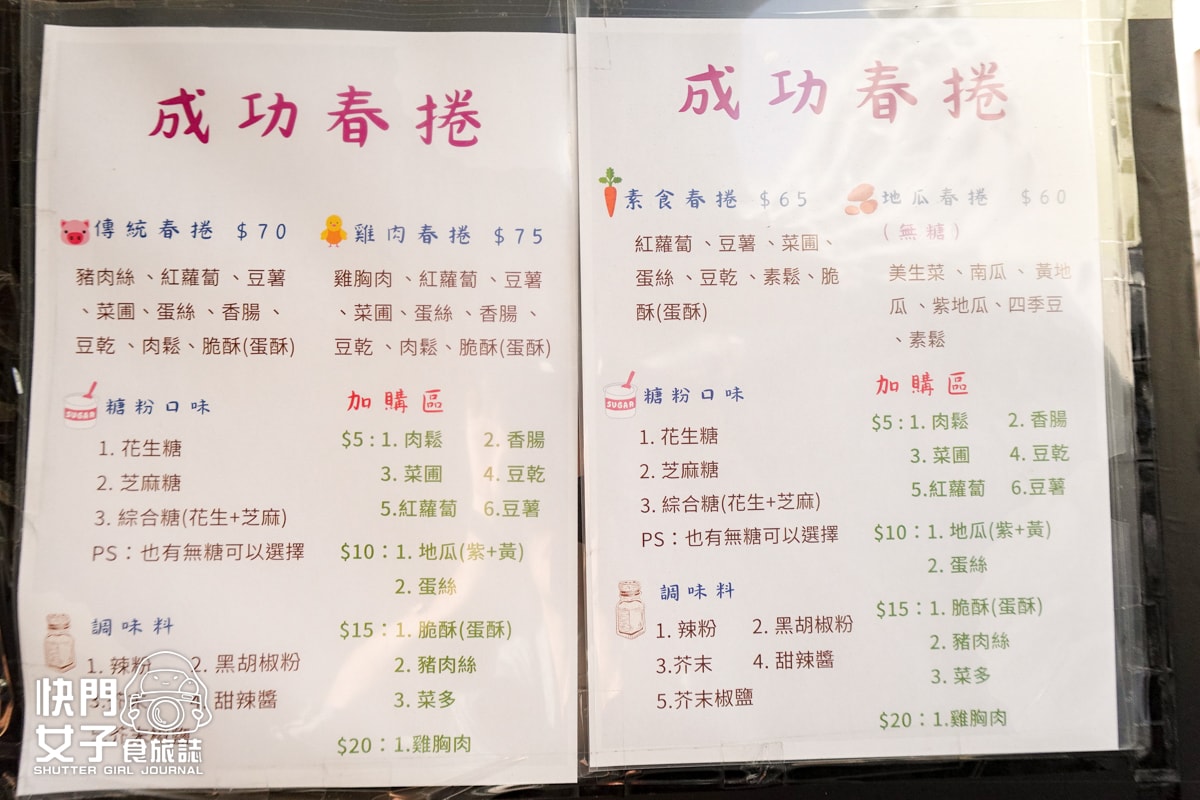 成功春捲
傳統春捲 $70
豬肉絲、紅蘿蔔、豆薯
、菜圃、蛋絲、香腸、
豆乾、肉鬆、脆酥(蛋酥)
雞肉春捲 $75
雞胸肉、紅蘿蔔、豆薯
、菜圃、蛋絲、香腸、
豆乾、肉鬆、脆酥(蛋酥)
SUGAR
糖粉口味
1. 花生糖
2. 芝麻糖
3. 綜合糖(花生+芝麻)
PS：也有無糖可以選擇
調味料
1. 辣粉 2. 黑胡椒粉
4. 甜辣醬
加購區
$5 : 1. 肉鬆 2. 香腸
3. 菜圃 4. 豆乾
5.紅蘿蔔 6.豆薯
$10：1. 地瓜(紫+黃)
2. 蛋絲
$15：1. 脆酥(蛋酥)
2. 豬肉絲
3. 菜多
$20：1.雞胸肉
快門
女子食旅誌
SHUTTER GIRL JOURNAL
成功春捲
素食春捲 $65
紅蘿蔔、豆薯、菜圃、
蛋絲、豆乾、素鬆、脆
酥(蛋酥)
地瓜春捲 $60
(無糖)
美生菜、南瓜、黃地
瓜、紫地瓜、四季豆
、素鬆
SUGAR
糖粉口味
1. 花生糖
2. 芝麻糖
3. 綜合糖(花生+芝麻)
PS：也有無糖可以選擇
調味料
1. 辣粉 2. 黑胡椒粉
3.芥末 4. 甜辣醬
5.芥末椒鹽
加購區
$5 : 1. 肉鬆 2. 香腸
3. 菜圃 4. 豆乾
5.紅蘿蔔 6.豆薯
$10：1. 地瓜(紫+黃)
2. 蛋絲
$15：1. 脆酥(蛋酥)
2. 豬肉絲
3. 菜多
$20：1.雞胸肉